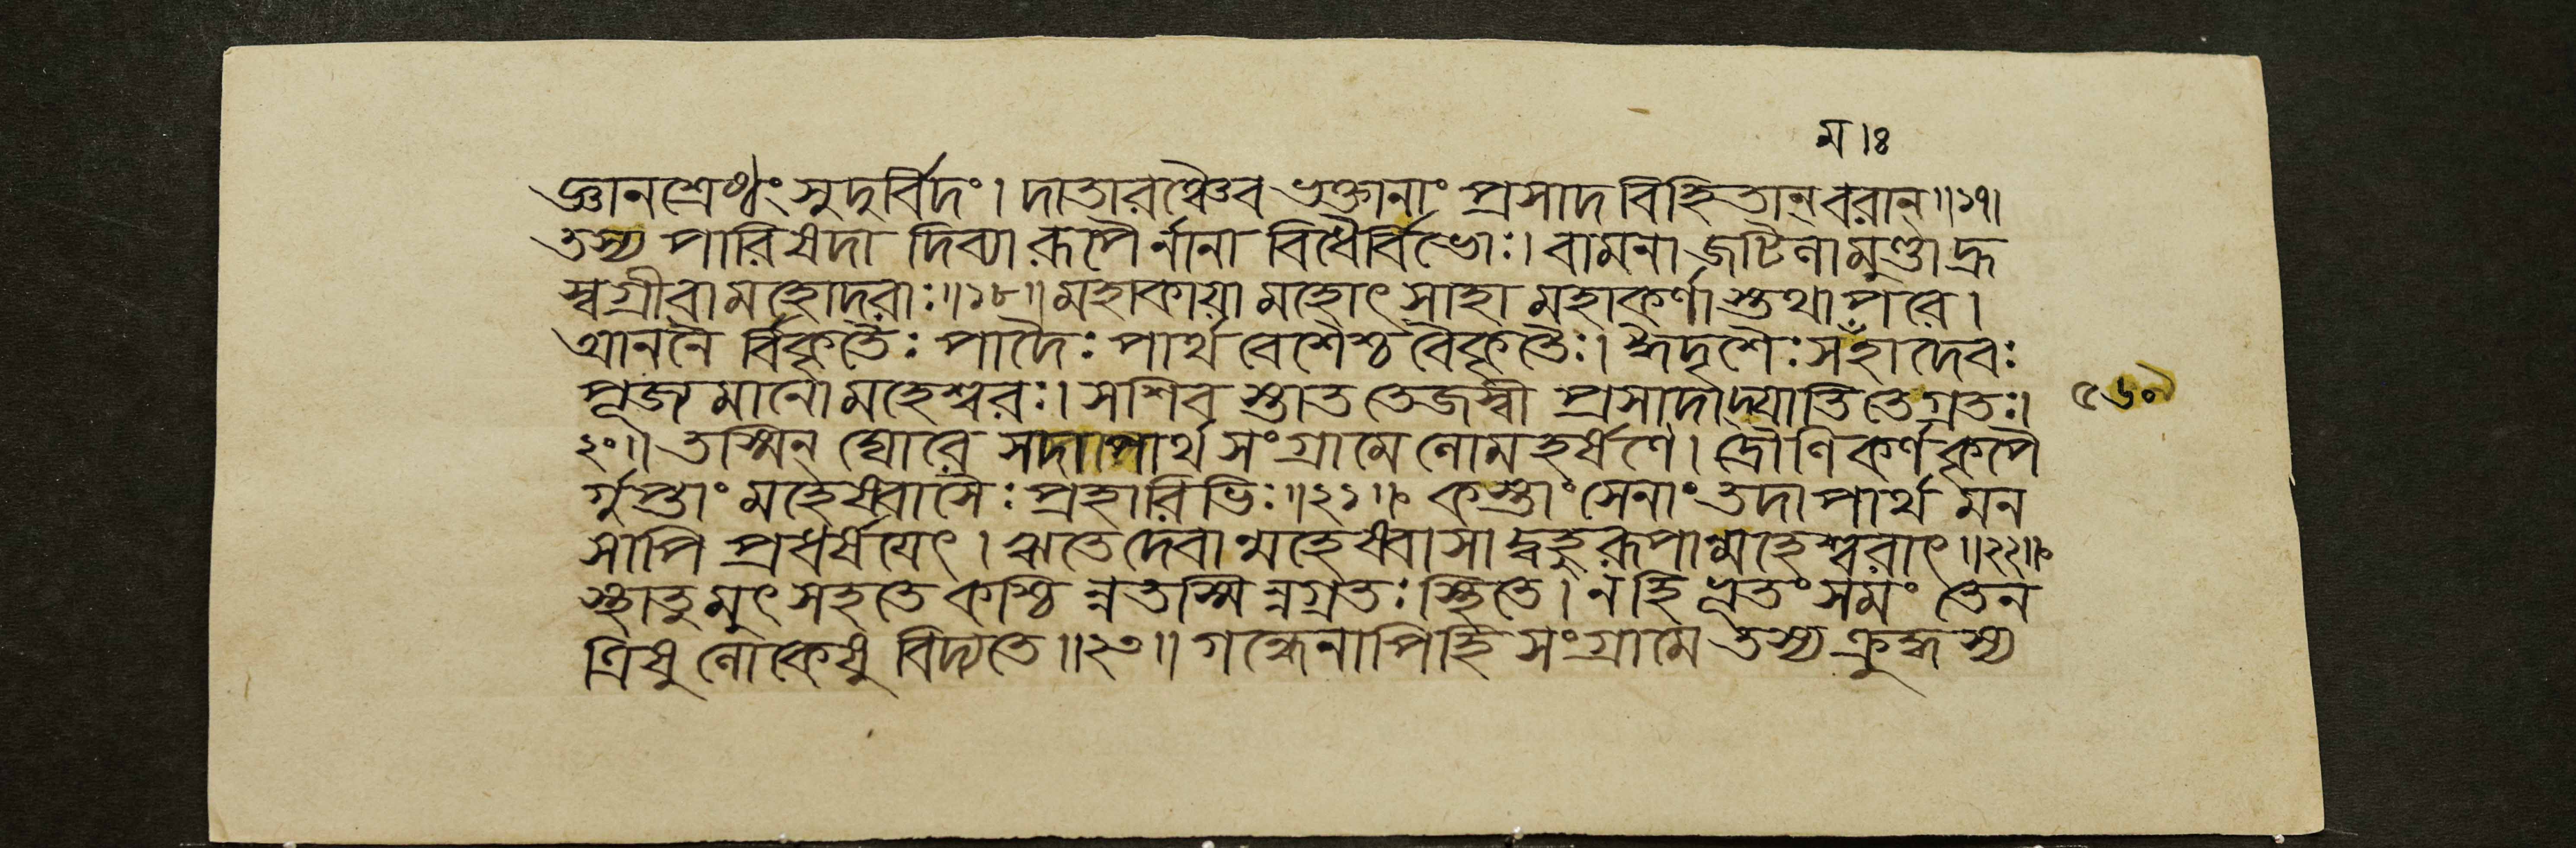 ম।ঃ
জ্ঞানশ্রেষ্ঠং সুদুর্বিদং। দাতারঞ্চৈব ভক্তানাং প্রসাদ বিহিতান্ বরান্॥১৭।
তস্য পারিষদা দিব্যা রূপৈর্নানা বিধৈর্বিভোঃ। বামনা জটিনা মুণ্ডা হ্র
স্বগ্রীবা মহোদরাঃ॥১৮॥ মহাকায়া মহোৎসাহা মহাকর্ণা স্তথা পরে।
আননৈ র্বিকৃতৈঃ পাদৈঃ পার্থ বেশৈশ্চ বৈকৃতৈঃ। ঈদৃশৈঃ সঁহাদেবঃ
পূজ্য মানো মহেশ্বরঃ। স শিব স্তাত তেজস্বী প্রসাদাদ্যাতি তেগ্রতঃ।
৫৬৩
২০॥ তস্মিন্ ঘোরে সদা পার্থ সংগ্রামে লোমহর্ষণে। দ্রৌণিকর্ণকৃপৈ
র্গুপ্তাং মহেষ্বাসৈঃ প্রহারিভিঃ॥২১॥ কস্তাং সেনাং তদা পার্থ মন
সাপি প্রধর্ষয়েৎ। ঋতে দেবান্মহেষ্বাসা দ্বহুরূপান্মহেশ্বরাৎ॥২২॥
স্থাতুমুৎসহতে কশ্চি ন্নতস্মি ন্নগ্রতঃ স্থিতে। নহি ভূতং সমং তেন
ত্রিষু লোকেষু বিদ্যতে॥২৩॥ গন্ধেনাপিহি সংগ্রামে তস্য ক্রুদ্ধস্য